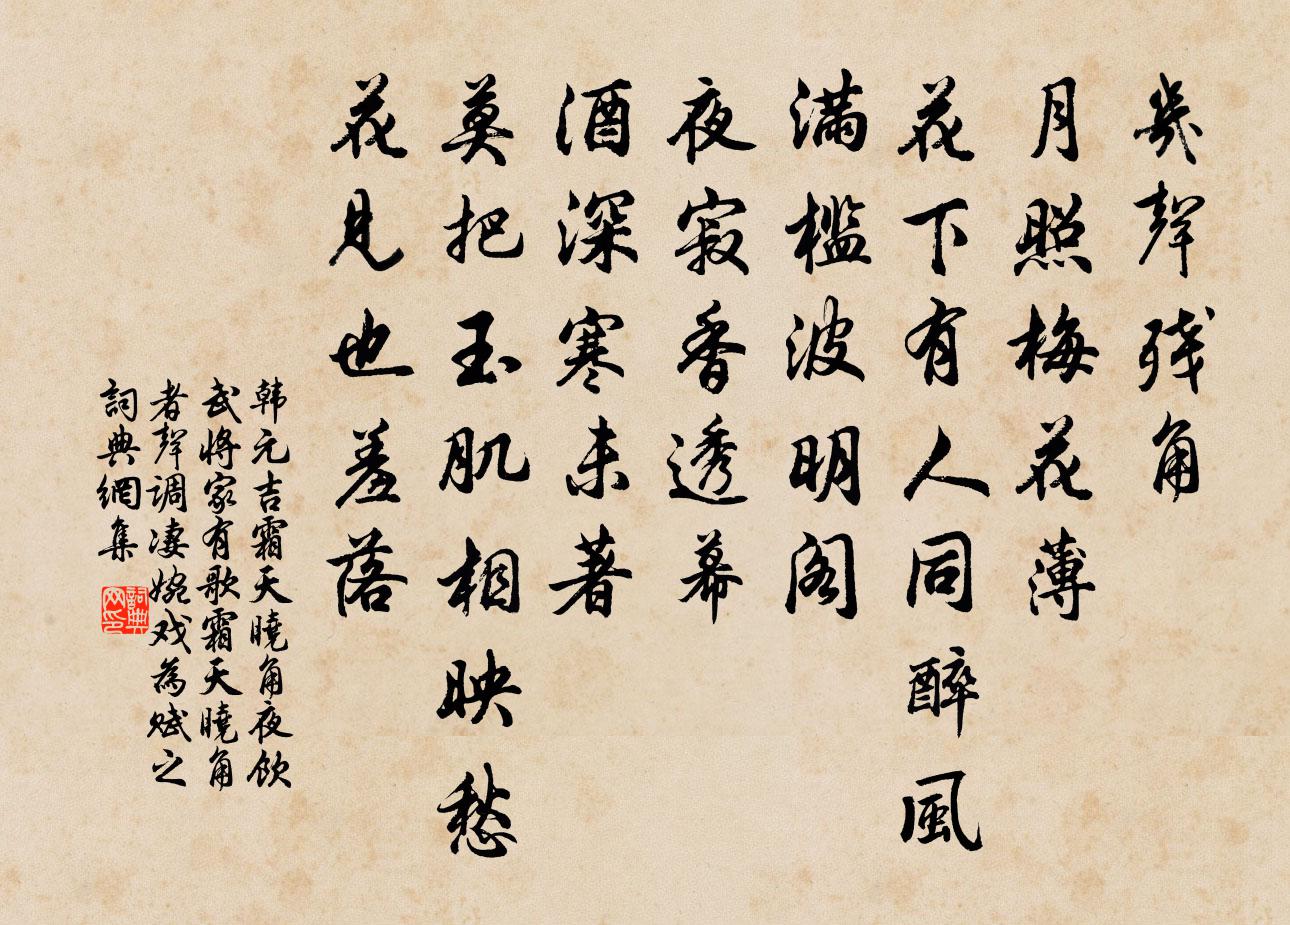 幾聲殘角
月照梅花薄
花下有人同醉風
滿檻波明閣
夜寂香透幕
酒深寒未著
莫把玉肌相映愁
花見也羞落
韩元吉霜天曉角夜飲
武將家有歌霜天曉角
者聲調凄婉戏為赋之
詞典網集
詞典网印